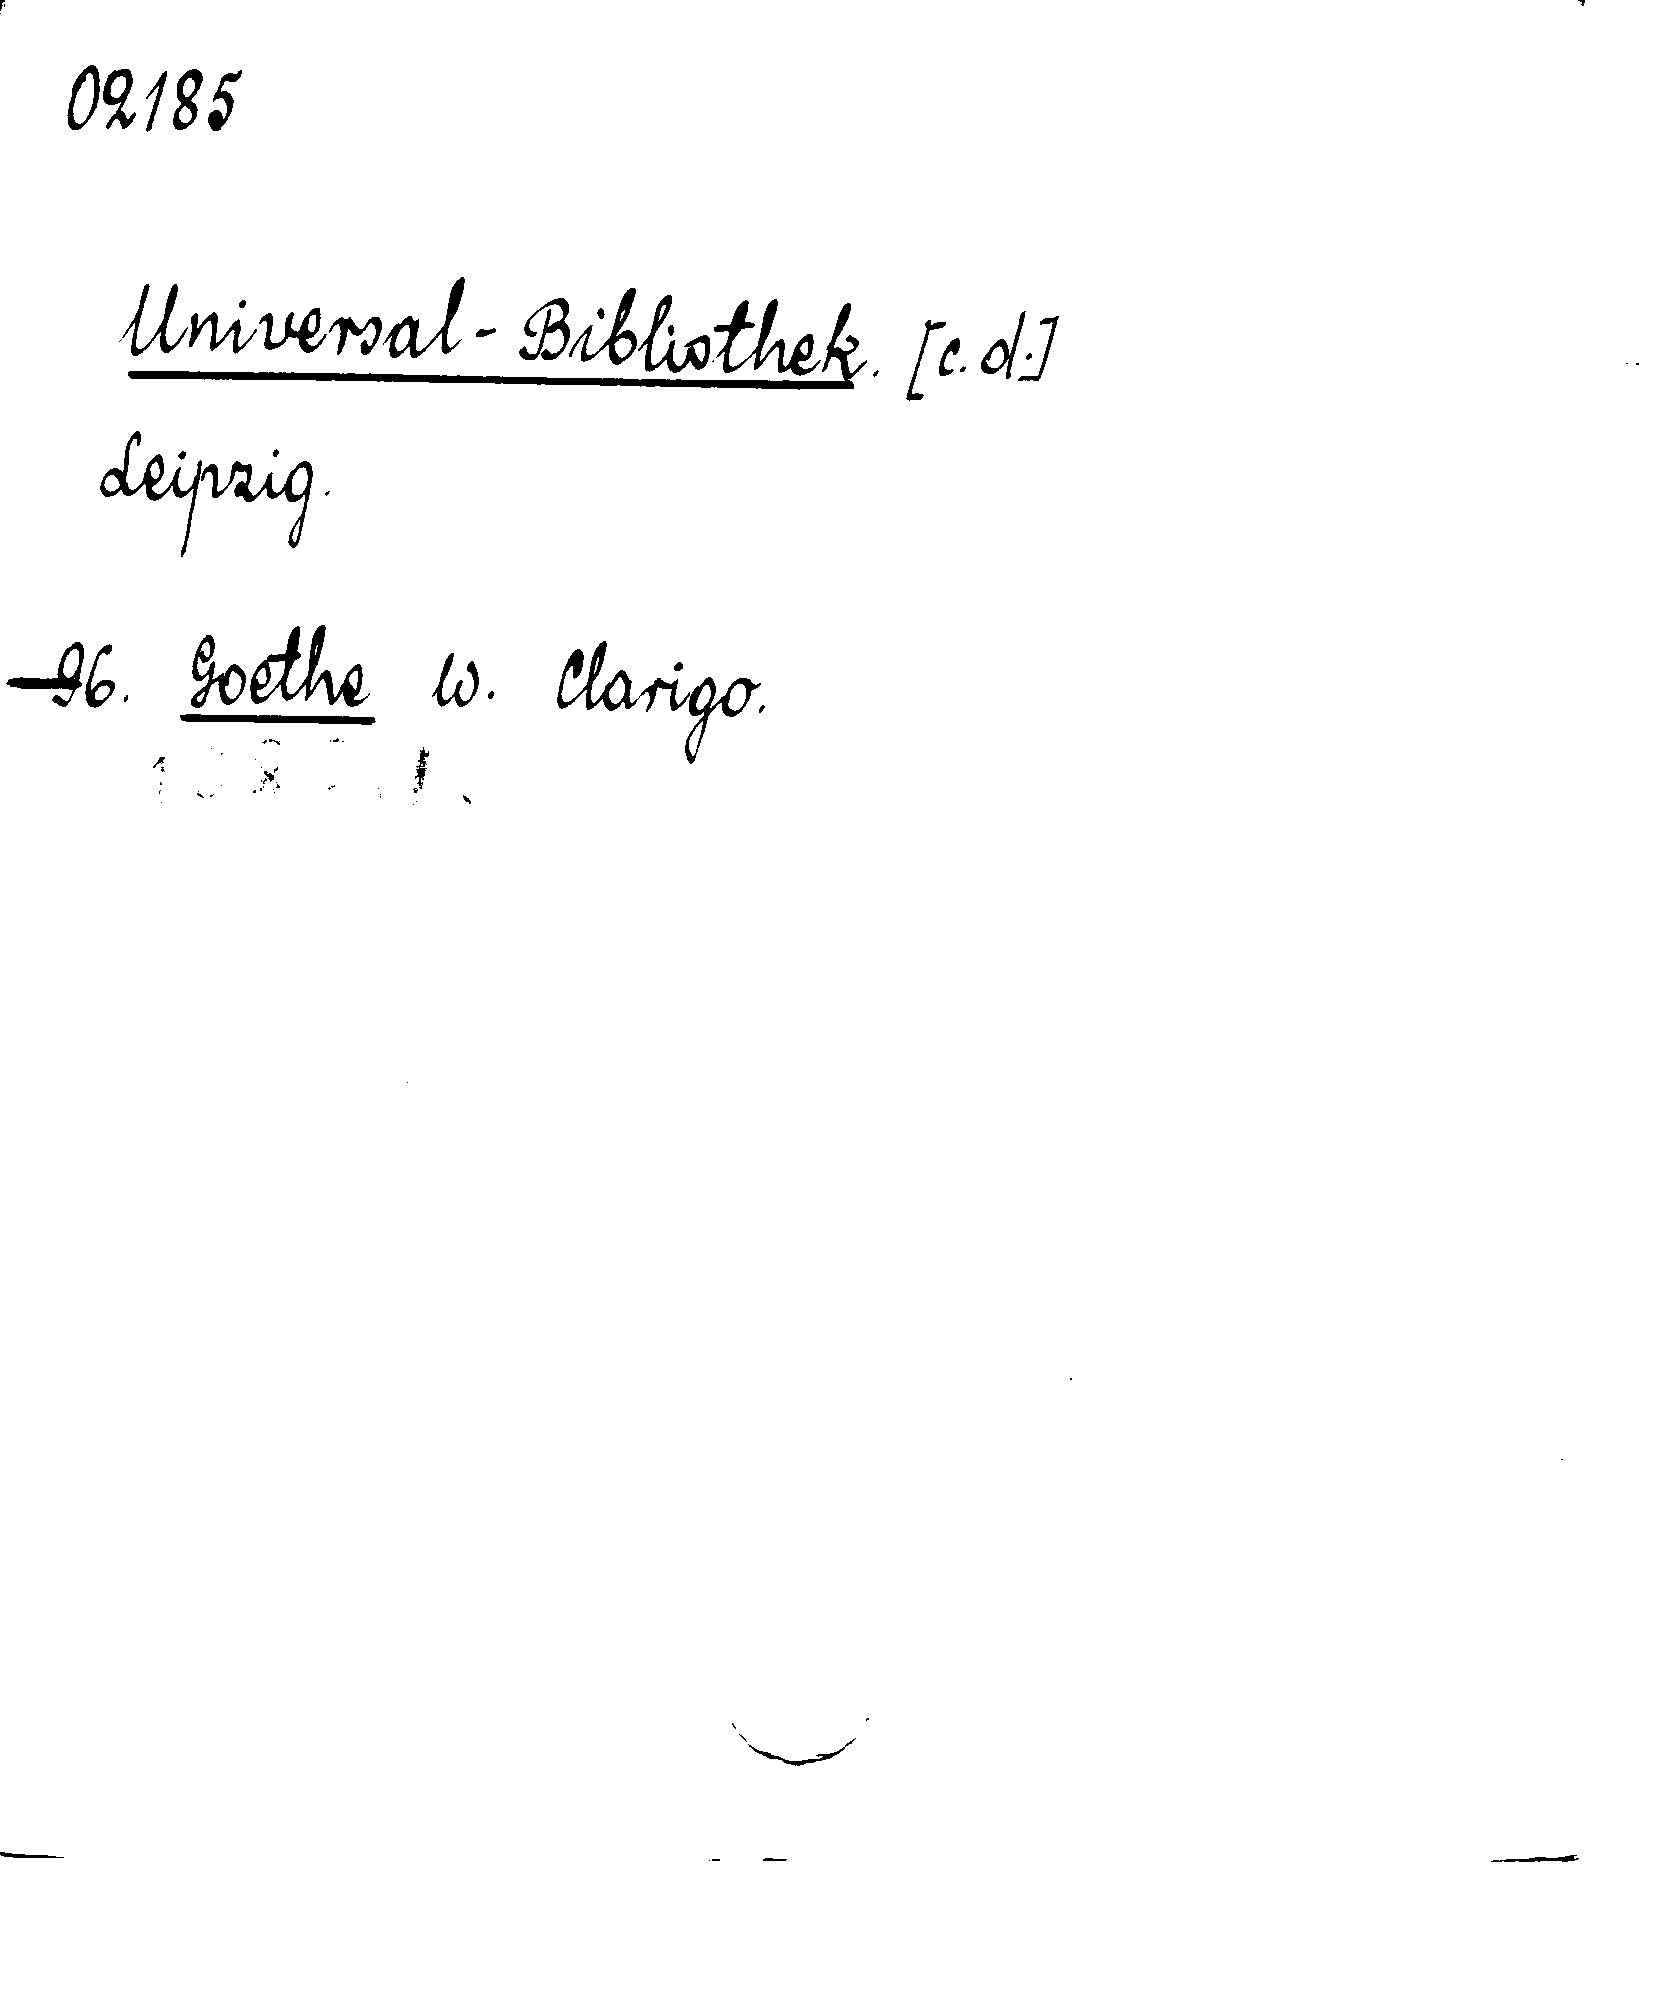 02185
Universal-Bibliothek. [c.d.]
Leipzig.
96. Goethe W. Clarigo.